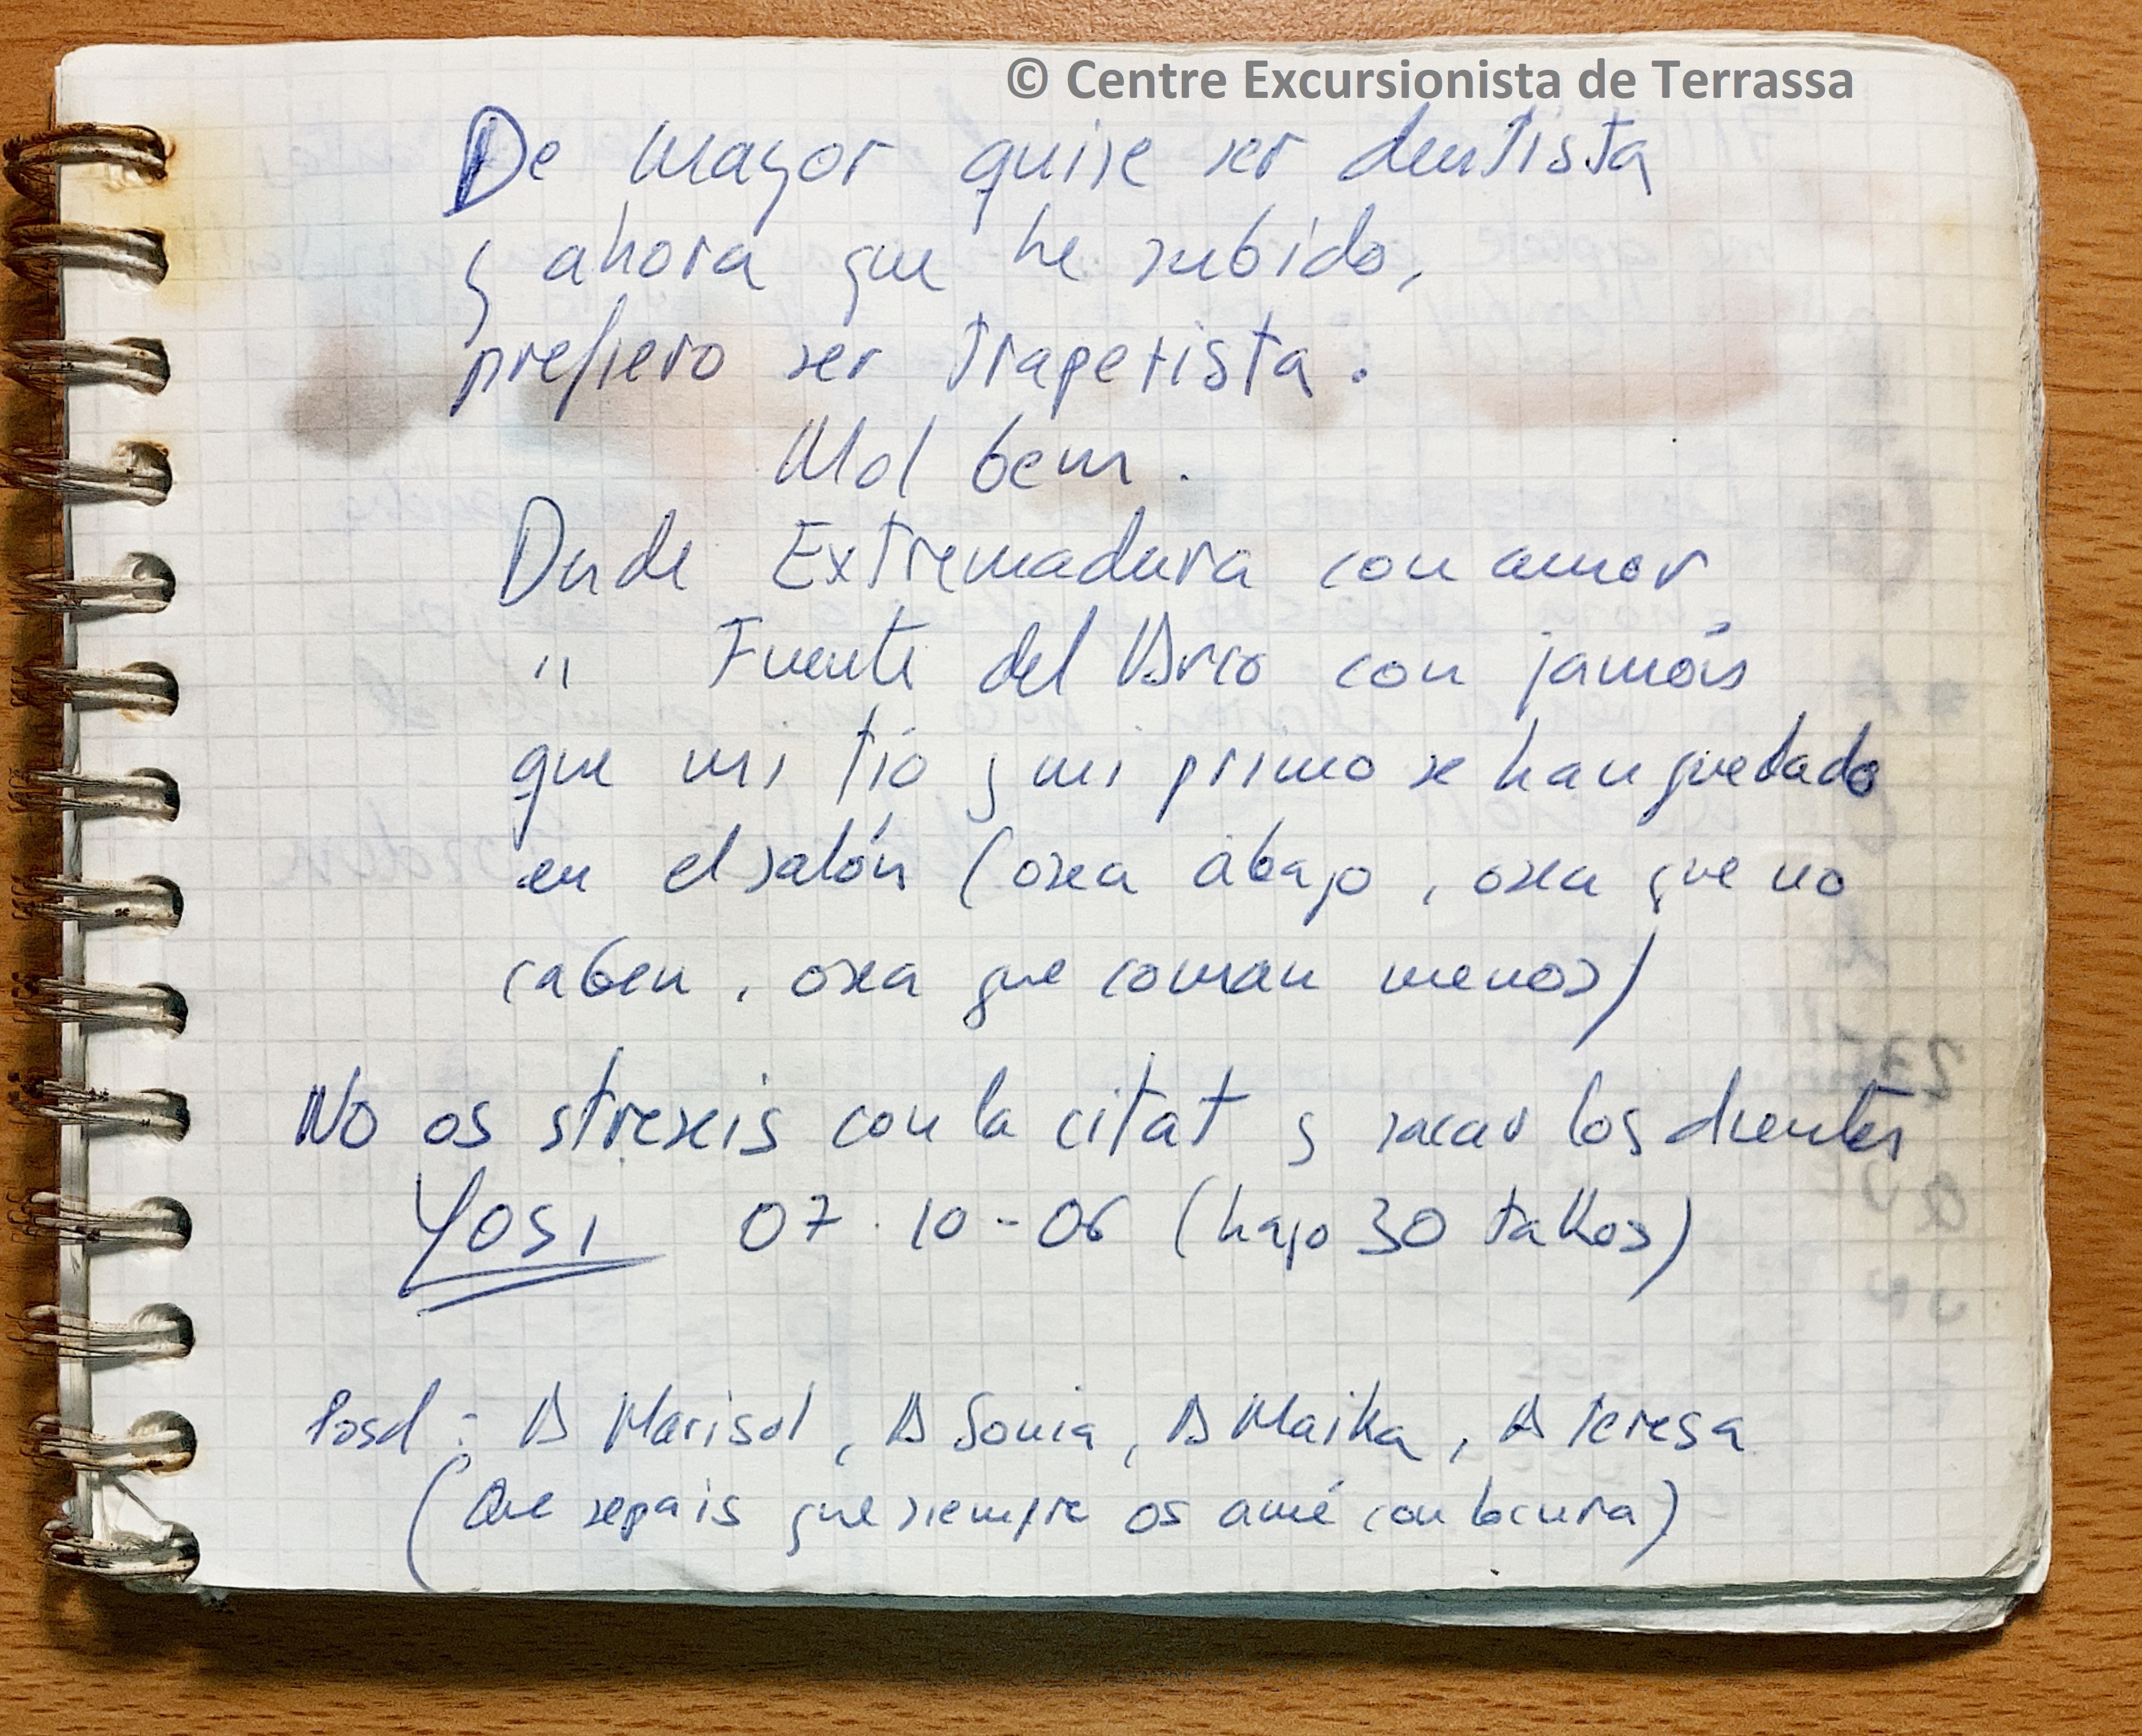 © Centre Excursionista de Terrassa
De mayor quise ser dentista
y ahora que he subido,
prefiero ser trapetista.
Mol bem.
Desde Extremadura con amor
" Fuente del Arco con jamóis
que mi tió y mi primo se han quedado
en el salón (osea abajo, osea que no
caben, osea que coman menos)
No os streseis con la citat y sacar los dientes
Yosi 07-10-06 (hago 30 takos)
Posd: A Marisol, A Sonia, A Maika, A Teresa
(Que sepais que siempre os amé con locura)